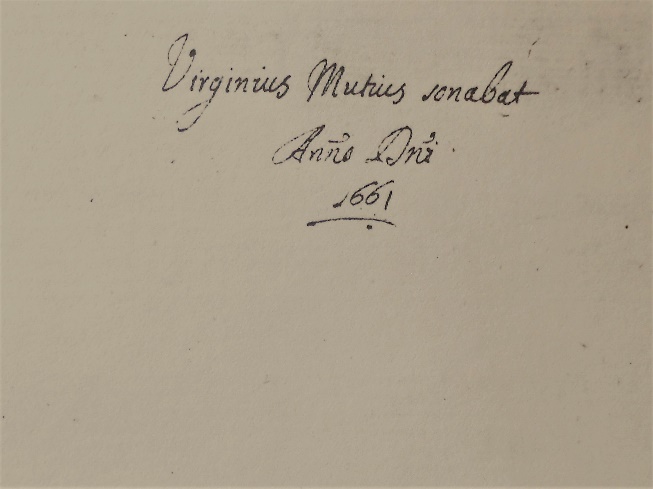 Virginius Mutius sonabat
Anño Dñi
1661